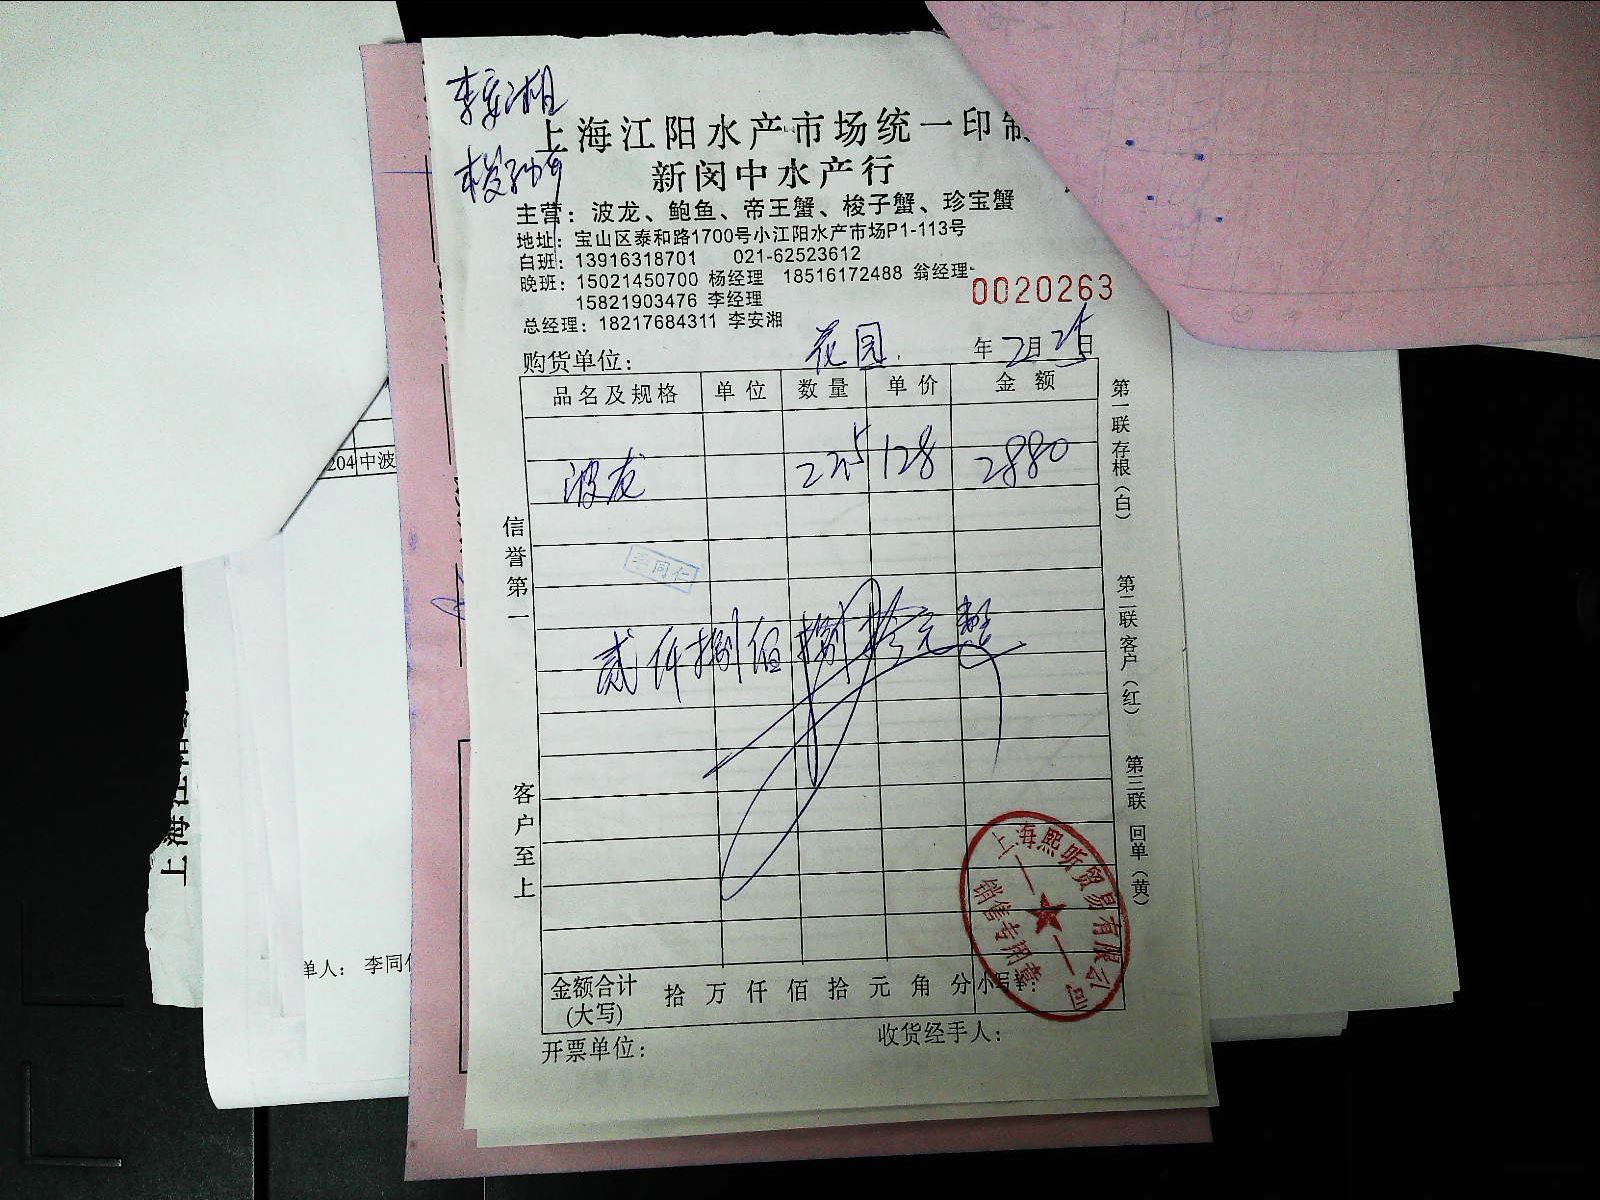 李安湘
上海江阳水产市场统一印制
新闵中水产行
主营：波龙、鲍鱼、帝王蟹、梭子蟹、珍宝蟹
地址：宝山区泰和路1700号小江阳水产市场P1-113号
白班：13916318701 021-62523612
晚班：15021450700 杨经理 18516172488 翁经理
15821903476 李经理
0020263
总经理：18217684311 李安湘
购货单位： 花园 年 2月25日
品名及规格 单位 数量 单价 金额
波龙 22.5 128 2880
贰仟捌佰捌拾元整
李同仁
信誉第一
客户至上
第一联存根（白）
第二联客户（红）
第三联 回单（黄）
上海熙昕贸易有限公司
销售专用章
金额合计（大写） 拾 万 仟 佰 拾 元 角 分 小写¥：
开票单位： 收货经手人：
204 中波
单人： 李同
上海江